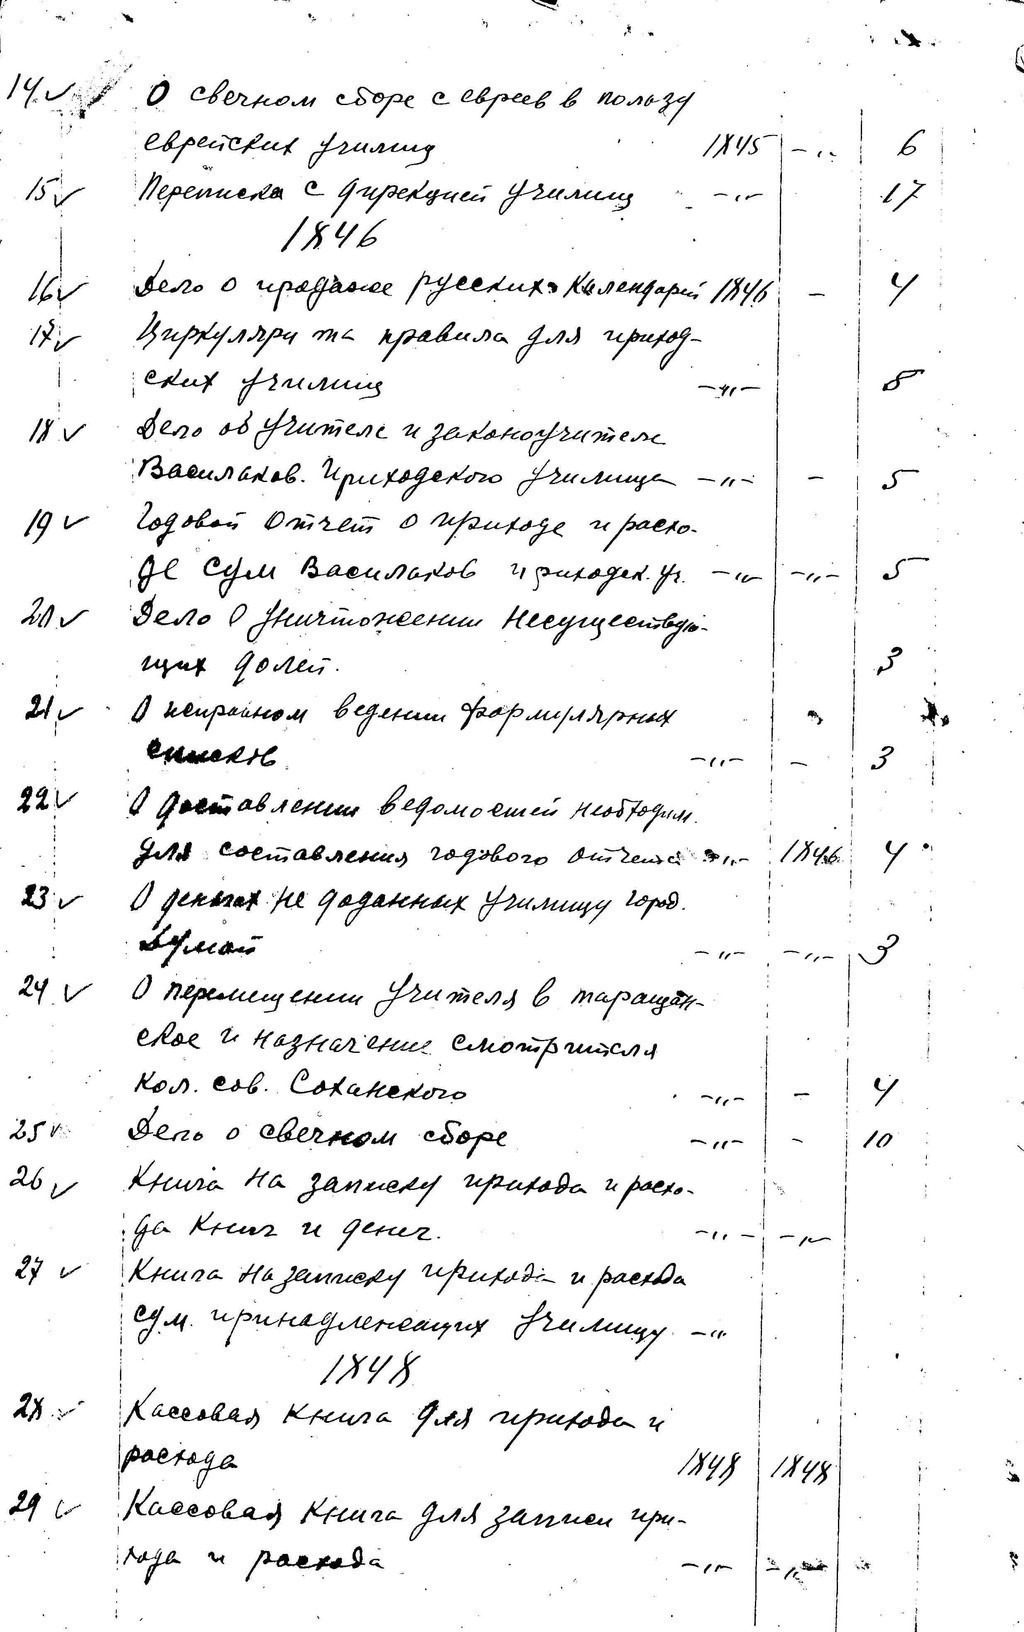 14. О свечном сборе с евреев в пользу
еврейских училищ 1845 -„- 6
15 Переписка с дирекцией училищ -„- 17
1846
16 Дело о продаже русских календарей 1846 - 4
17 Циркуляри та правила для приход-
ских училищ -„- 8
18 Дело об учителе и законоучителе
Васильков. приходского училища -„- - 5
19 Годовой отчет о приходе и расхо-
де сум Васильков приходск. уч. -„- -„- 5
20 Дело о уничтожении несуществую-
щих долей. 3
21 О исправном ведении формулярных
списков -„- - 3
22 О доставлении ведомостей необходим.
для составления годового отчета -„- 1846 4
23 О деньгах не доданных училищу город.
думой -„- -„- 3
24 О перемещении учителя в таращан-
ское и назначение смотрителя
кол. сов. Соханского -„- - 4
25 Дело о свечном сборе -„- - 10
26 Книга на записку прихода и расхо-
да книг и денег. -„- -„-
27 Книга на записку прихода и расхода
сум. принадлежащих училищу -„
1848
28 Кассовая книга для прихода и
расхода 1848 1848
29 Кассовая книга для записи при-
хода и расхода -„- -„-